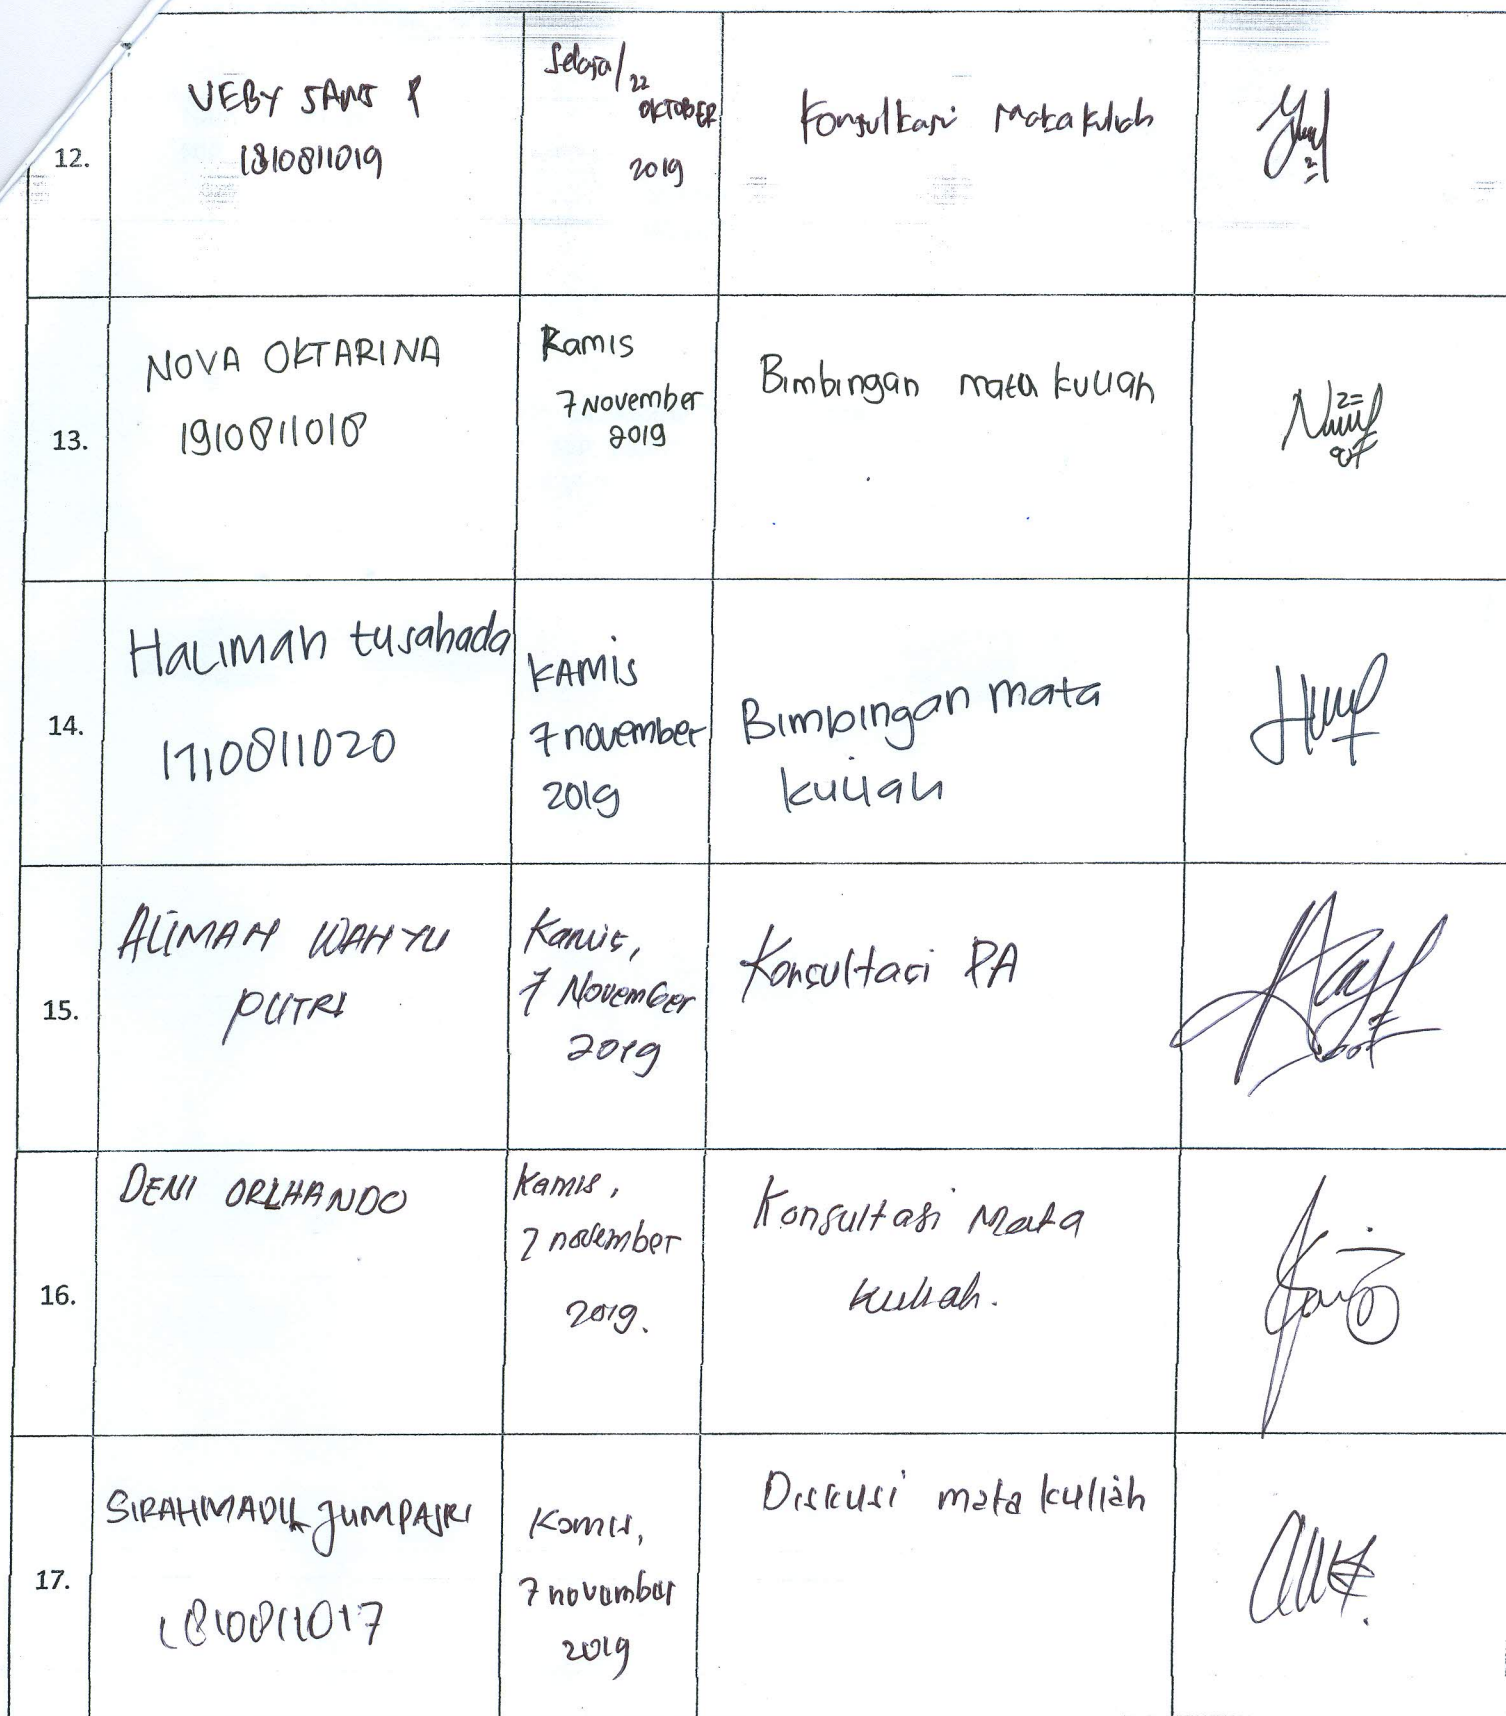 12.
VEBY SANS P
1810811019
Selasa/ 22
OKTOBER
2019
Konsultasi Matakuliah
13.
NOVA OKTARINA
1910811018
Kamis
7 November
2019
Bimbingan mata kuliah
14.
Halimah tusahada
1710811020
KAMIS
7 november
2019
Bimbingan mata
kuliah
15.
ALIMAH WAHYU
PUTRI
Kamis,
7 November
2019
Konsultasi PA
16.
DENI ORLHANDO
Kamis,
7 november
2019.
Konsultasi Mata
kuliah.
17.
1810811017
Kamis,
7 november
2019
Diskusi mata kuliah